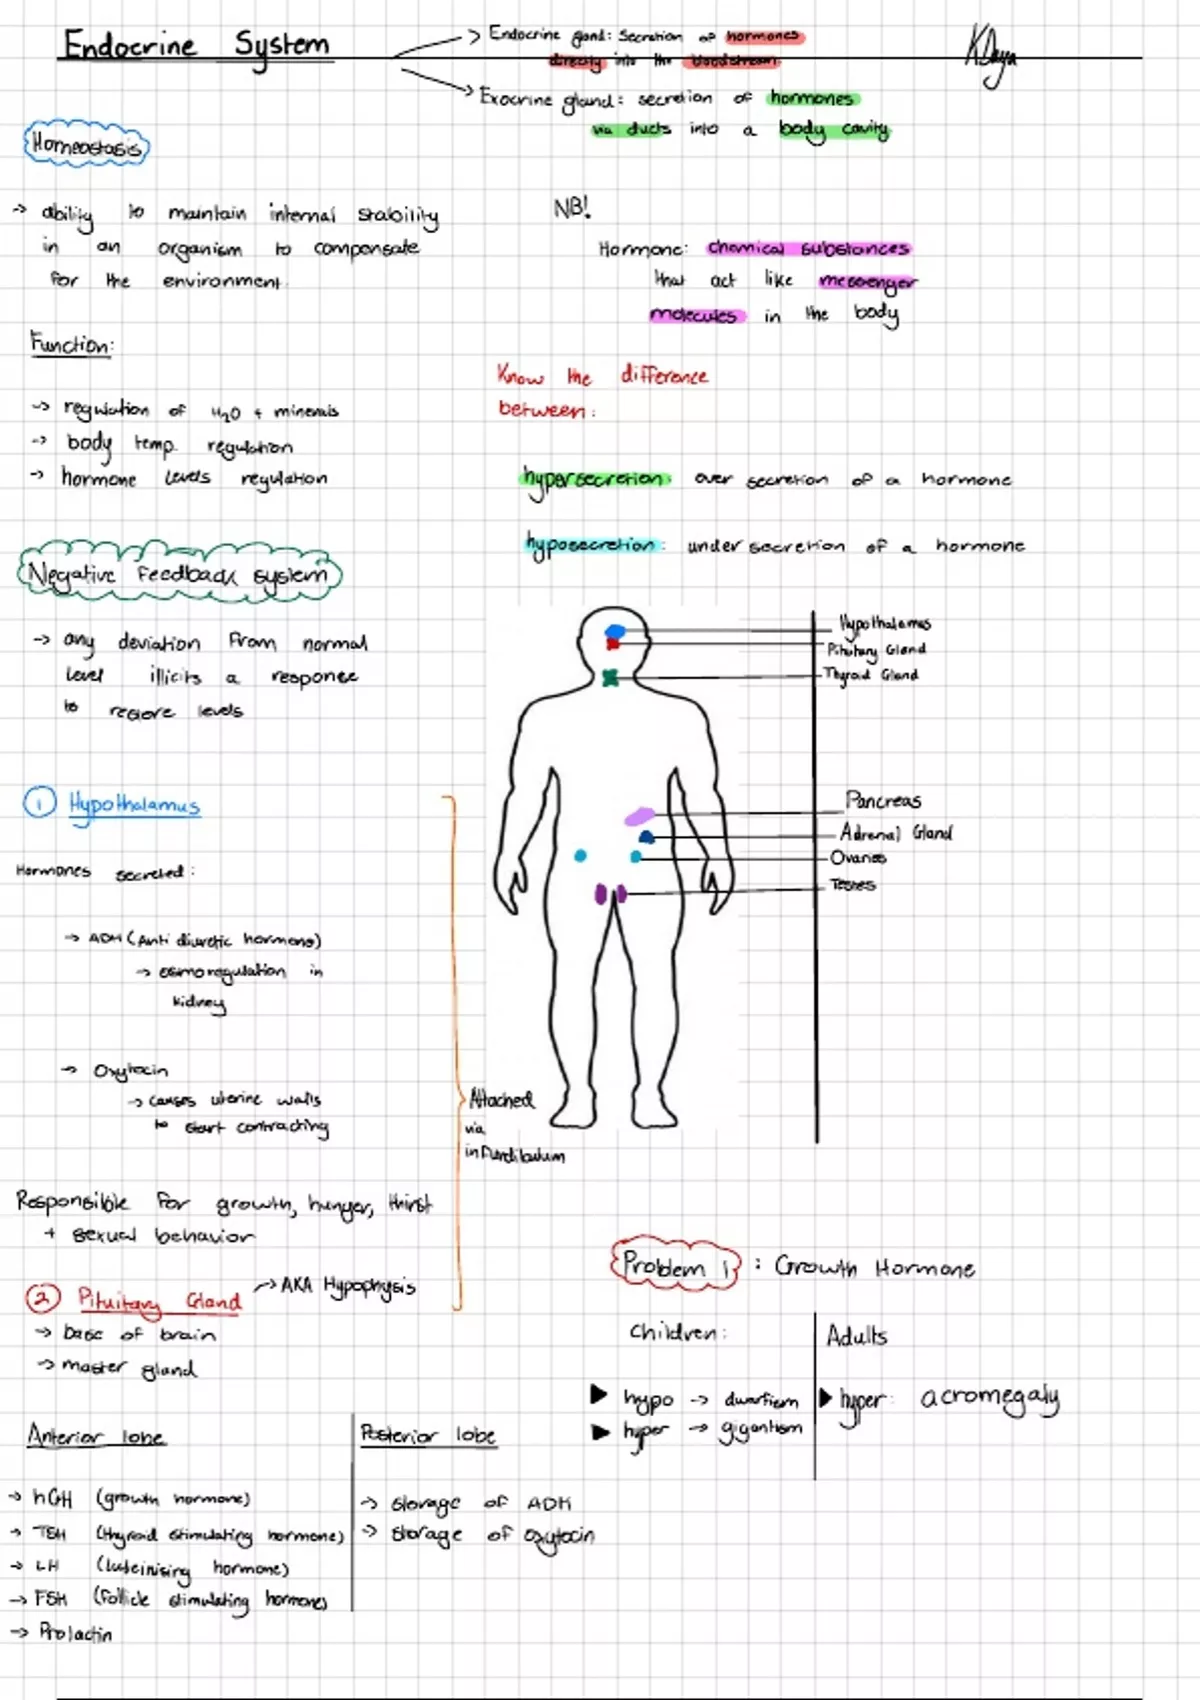 Endocrine System
→ Endocrine gland: Secretion of hormones
directly into the bloodstream.
→ Exocrine gland: secretion of hormones
via ducts into a body cavity
Homeostasis
→ ability to maintain internal stability
in an organism to compensate
for the environment.
Function:
→ regulation of H₂O + minerals
→ body temp. regulation
→ hormone levels regulation
NB!
Hormone: chemical substances
that act like messenger
molecules in the body
Know the difference
between:
hypersecretion: over secretion of a hormone
hyposecretion: under secretion of a hormone
Negative Feedback system
→ any deviation from normal
level illicits a response
to restore levels
Hypothalamus
Pituitary Gland
Thyroid Gland
Pancreas
Adrenal Gland
Ovaries
Testes
1 Hypothalamus
Hormones secreted:
→ ADH (Anti diuretic hormone)
→ osmoregulation in
kidney
→ Oxytocin
→ causes uterine walls
to start contracting
Responsible for growth, hunger, thirst
+ sexual behavior
Attached
via
infundibulum
2 Pituitary Gland → AKA Hypophysis
→ base of brain
→ master gland
Anterior lobe
→ hGH (growth hormone)
→ TSH (thyroid stimulating hormone)
→ LH (luteinising hormone)
→ FSH (Follicle stimulating hormone)
→ Prolactin
Posterior lobe
→ storage of ADH
→ storage of oxytocin
Problem 1 : Growth Hormone
Children:
▶ hypo → dwarfism
▶ hyper → gigantism
Adults
▶ hyper: acromegaly